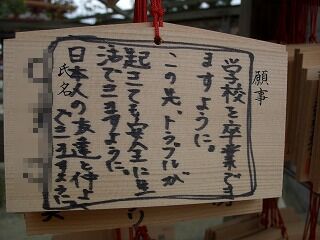 願事
学校を卒業でき
ますように。
この先、トラブルが
起こても安全に生
活できますように。
日本人の友達と仲よく
できますように
氏名